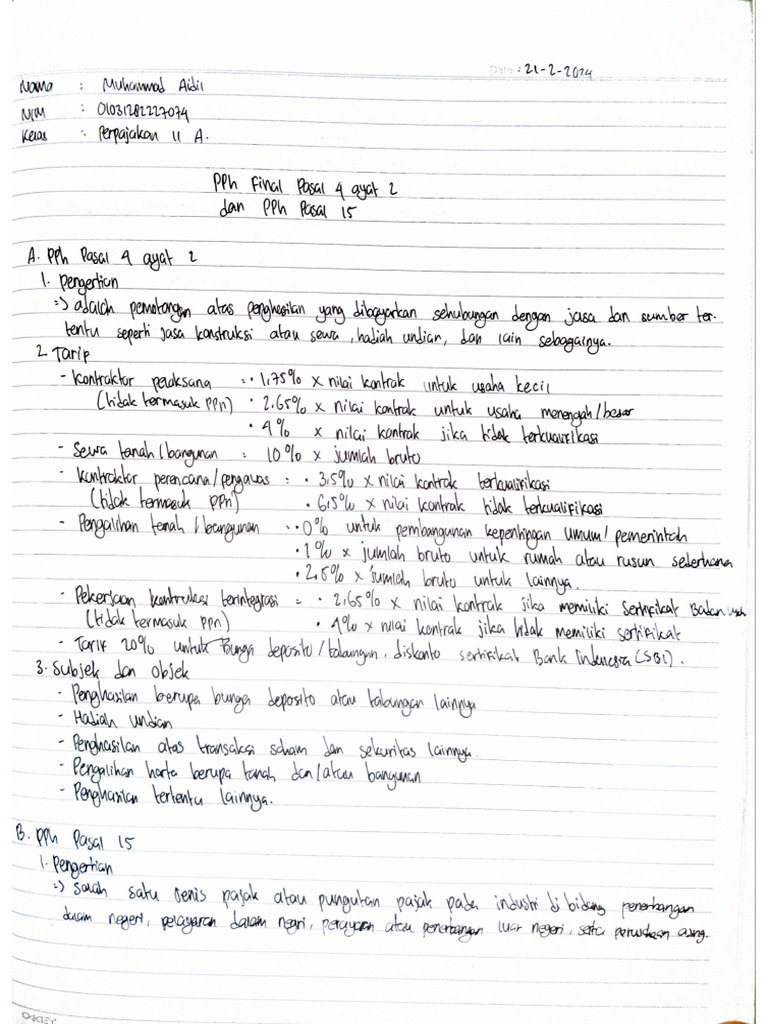 Date : 21-2-2024
Nama : Muhammad Aidil
NIM : 01031282227074
Kelas : Perpajakan II A.
PPh Final Pasal 4 ayat 2
dan PPh Pasal 15
A. PPh Pasal 4 ayat 2
1. Pengertian
=> adalah pemotongan atas penghasilan yang dibayarkan sehubungan dengan jasa dan sumber ter-
tentu seperti jasa konstruksi atau sewa, hadiah undian, dan lain sebagainya.
2. Tarif
- Kontraktor pelaksana = • 1,75% x nilai kontrak untuk usaha kecil
(tidak termasuk PPn) • 2,65% x nilai kontrak untuk usaha menengah/besar
• 4% x nilai kontrak jika tidak terkualifikasi
- Sewa tanah/bangunan = 10% x jumlah bruto
- Kontraktor perencana/pengawas = • 3,5% x nilai kontrak terkualifikasi
(tidak termasuk PPn) • 6,5% x nilai kontrak tidak terkualifikasi
- Pengalihan tanah/bangunan = • 0% untuk pembangunan kepentingan umum/pemerintah
• 1% x jumlah bruto untuk rumah atau rusun sederhana
• 2,5% x jumlah bruto untuk lainnya.
- Pekerjaan kontruksi terintegrasi = • 2,65% x nilai kontrak jika memiliki sertifikat Badan usaha
(tidak termasuk PPn) • 4% x nilai kontrak jika tidak memiliki sertifikat
- Tarif 20% untuk Bunga deposito/tabungan, diskonto sertifikat Bank Indonesia (SBI).
3. Subjek dan Objek
- Penghasilan berupa bunga deposito atau tabungan lainnya
- Hadiah undian
- Penghasilan atas transaksi saham dan sekuritas lainnya.
- Pengalihan harta berupa tanah dan/atau bangunan
- Penghasilan tertentu lainnya.
B. PPh Pasal 15
1. Pengertian
=> Salah satu jenis pajak atau pungutan pajak pada industri di bidang penerbangan
dalam negeri, pelayaran dalam negri, pelayaran atau penerbangan luar negeri, serta perusahaan asing.
O-KEY